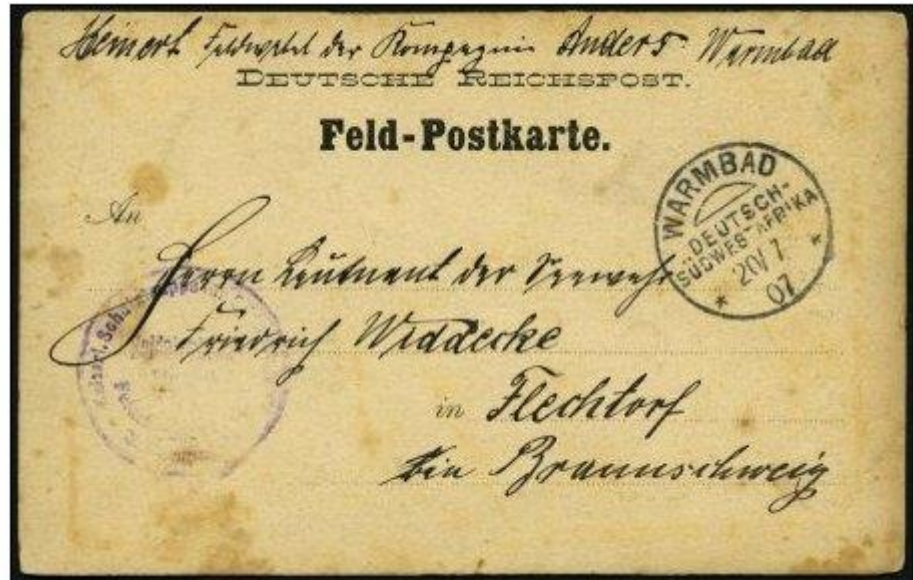 Heinert Feldwebel der Kompagnie Anders Warmbad
DEUTSCHE REICHSPOST.
Feld-Postkarte.
WARMBAD
DEUTSCH-
SÜDWESTAFRIKA
20/7
07
An
Herrn Leutnant der Seewehr
Friedrich Weddecke
in Flechtorf
bei Braunschweig
Kaiserl. Schutztruppe